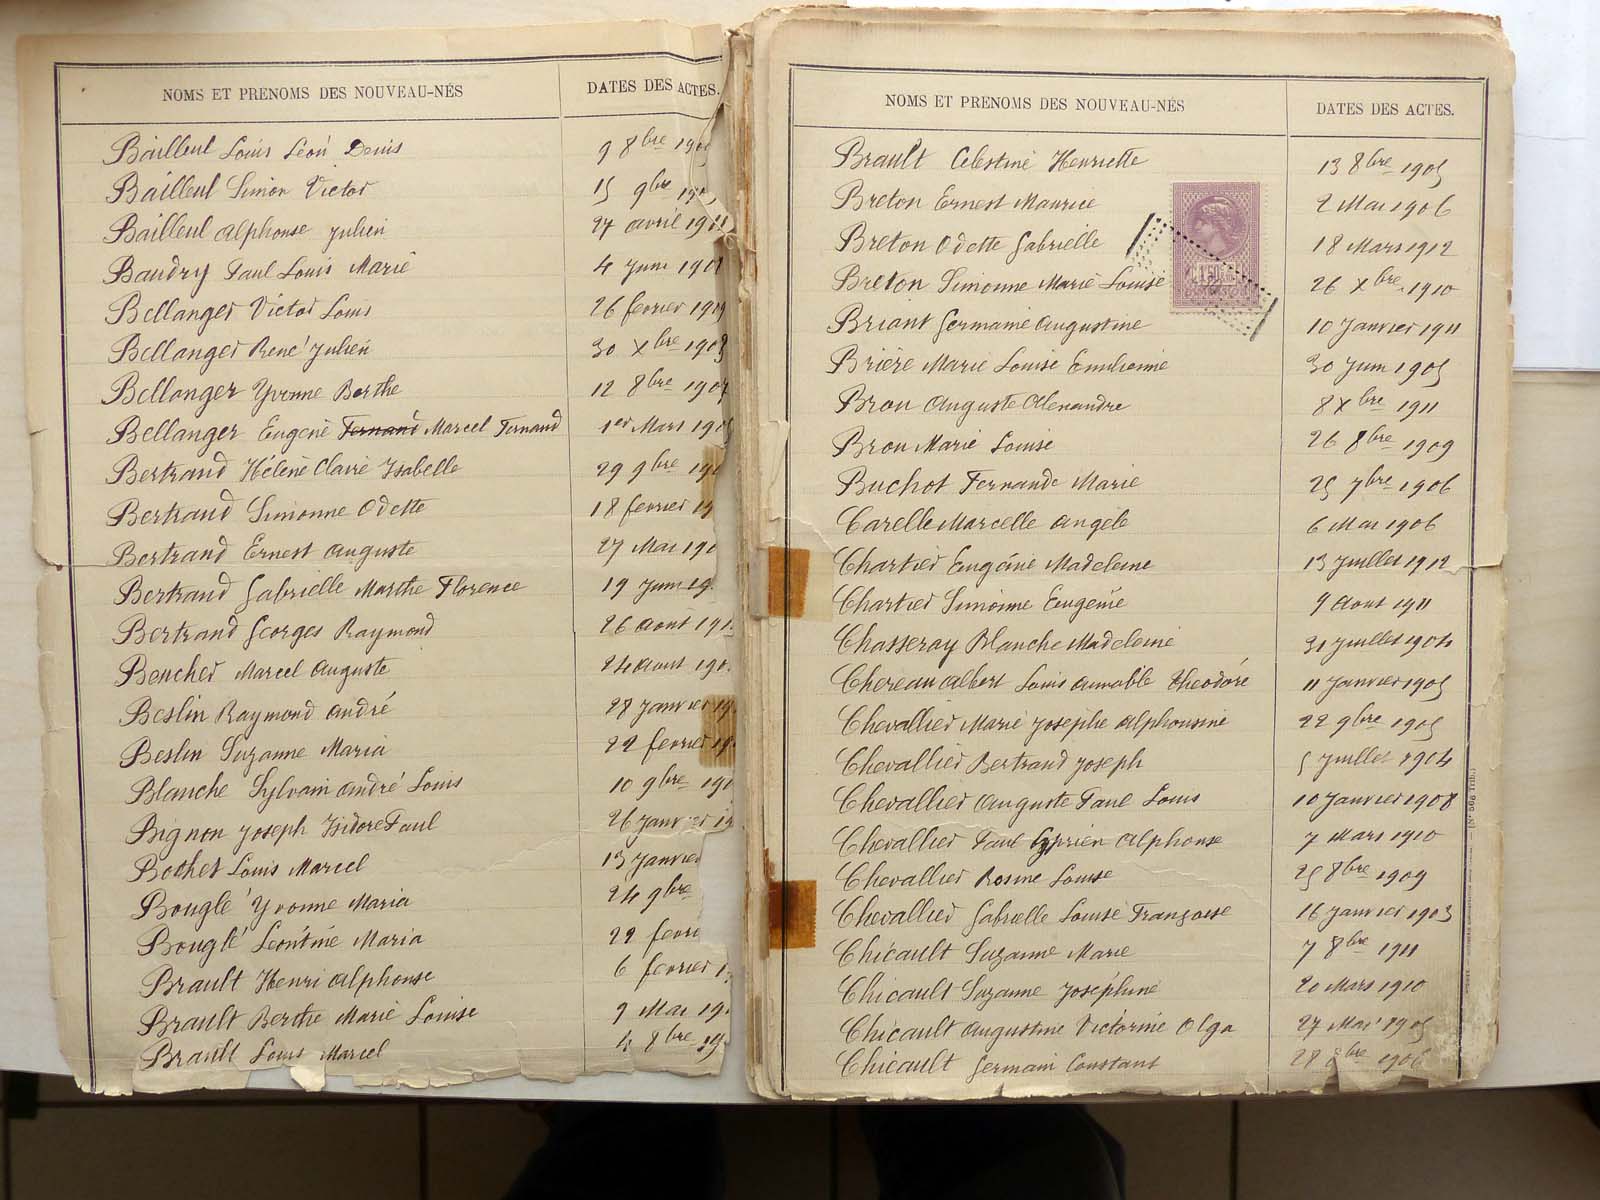 NOMS ET PRENOMS DES NOUVEAU-NÉS DATES DES ACTES.
Bailleul Louis Léon Denis 9 8bre
Bailleul Simon Victor 15 9bre
Bailleul Alphonse Julien 27 avril
Baudry Paul Louis Marie 4 Juin
Bellanger Victor Louis 26 fevrier
Bellanger René Julien 30 Xbre
Bellanger Yvonne Berthe 12 8bre
Bellanger Eugène Fernand Marcel Fernand 1er Mars
Bertrand Hélène Claire Isabelle 29 9bre
Bertrand Simonne Odette 18 fevrier
Bertrand Ernest Auguste 27 Mai 190
Bertrand Gabrielle Marthe Florence 19 Juin
Bertrand Georges Raymond 26 Août 191
Beucher Marcel Auguste 24 Aout 190
Beslin Raymond André 28 Janvier
Beslin Suzanne Maria 22 fevrier
Blanche Sylvain André Louis 10 9bre
Bignon Joseph Isidore Paul 26 Janvier
Bothet Louis Marcel 13 Janvier
Bouglé Yvonne Maria 24 9bre
Bouglé Léontine Maria 22 fevri
Brault Henri Alphonse 6 fevrier
Brault Berthe Marie Louise 9 Mai
Brault Louis Marcel 4 8bre
NOMS ET PRENOMS DES NOUVEAU-NÉS DATES DES ACTES.
Brault Celestine Henriette 13 8bre 1905
Breton Ernest Maurice 2 Mai 1906
Breton Odette Gabrielle 18 Mars 1912
Breton Simonne Marie Louise 26 Xbre 1910
Briant Germaine Augustine 10 Janvier 1911
Brière Marie Louise Emilienne 30 Juin 1905
Brou Auguste Alexandre 8 Xbre 1911
Brou Marie Louise 26 8bre 1909
Buchot Fernande Marie 25 7bre 1906
Carelle Marcelle Angèle 6 Mai 1906
Chartier Eugénie Madeleine 13 Juillet 1912
Chartier Simonne Eugénie 9 Aout 1911
Chasseray Blanche Madeleine 31 Juillet 1904
Chereau Albert Louis Aimable Théodore 11 Janvier 1905
Chevallier Marie Josephe Alphonsine 22 9bre 1905
Chevallier Bertrand Joseph 5 Juillet 1904
Chevallier Auguste Paul Louis 10 Janvier 1908
Chevallier Paul Cyprien Alphonse 7 Mars 1910
Chevallier Rosine Louise 25 8bre 1909
Chevallier Gabrielle Louise Françoise 16 Janvier 1903
Chicault Suzanne Marie 7 8bre 1911
Chicault Suzanne Joséphine 20 Mars 1910
Chicault Augustine Victorine Olga 27 Mai 1905
Chicault Germain Constant 28 bre 1906